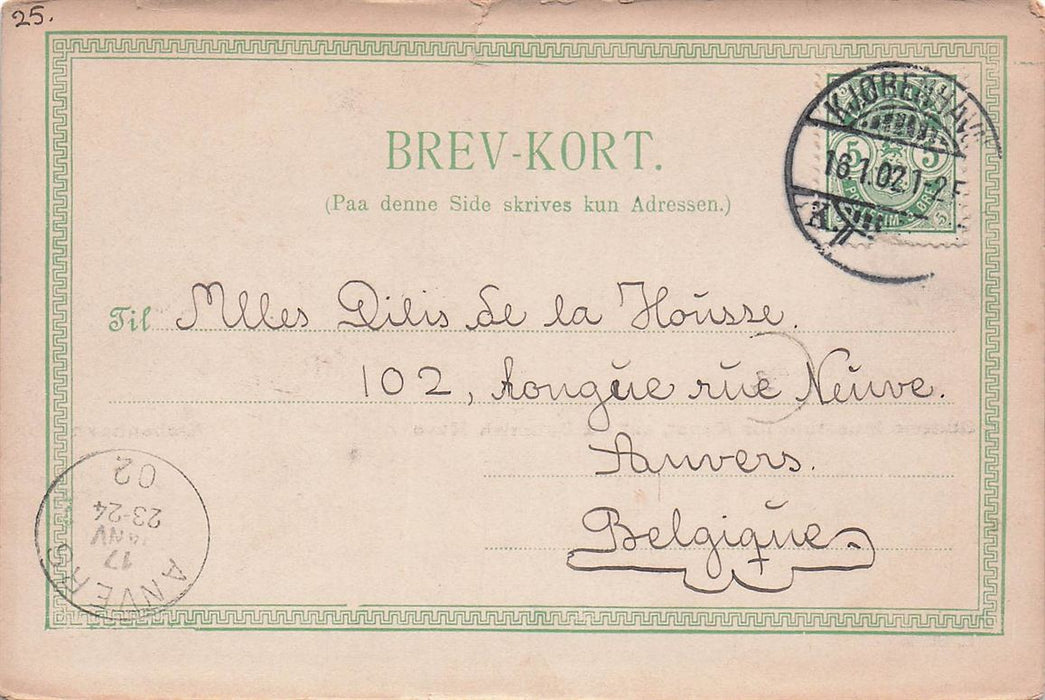 25.
BREV-KORT.
(Paa denne Side skrives kun Adressen.)
KJØBENHAVN
16.1.02 1-2 E
K.
5 5
Til Mlles Dilis de la Housse.
102, Longue rue Neuve.
Anvers.
Belgique.
ANVERS
17
JANV
23-24
02